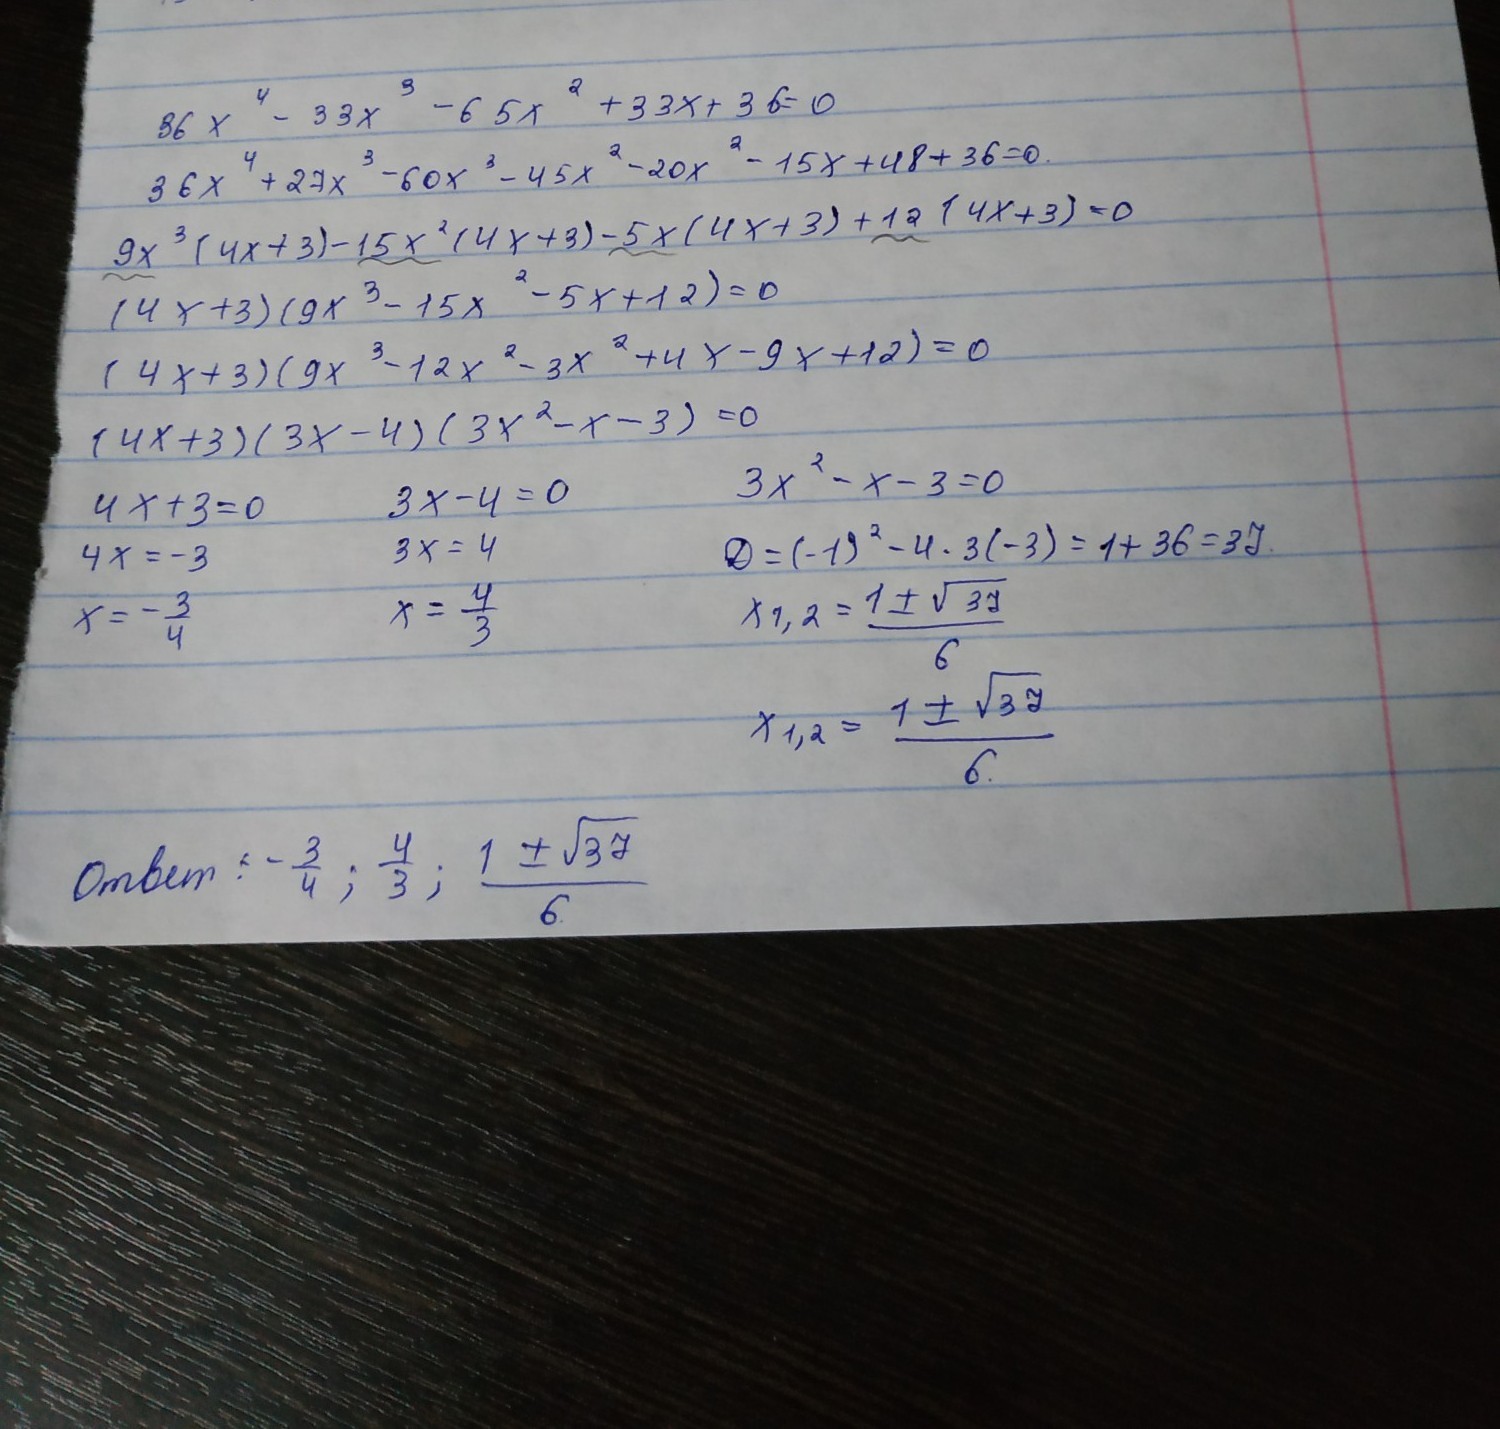 36x⁴ - 33x³ - 65x² + 33x + 36 = 0
36x⁴ + 27x³ - 60x³ - 45x² - 20x² - 15x + 48 + 36 = 0.
9x³(4x+3) - 15x²(4x+3) - 5x(4x+3) + 12(4x+3) = 0
(4x+3)(9x³ - 15x² - 5x + 12) = 0
(4x+3)(9x³ - 12x² - 3x² + 4x - 9x + 12) = 0
(4x+3)(3x-4)(3x² - x - 3) = 0
4x+3=0 3x-4=0 3x² - x - 3 = 0
4x = -3 3x = 4 D = (-1)² - 4·3(-3) = 1 + 36 = 37.
x = -3/4 x = 4/3 x1,2 = (1 ± √37)/6
x1,2 = (1 ± √37)/6.
Ответ: -3/4; 4/3; (1 ± √37)/6.